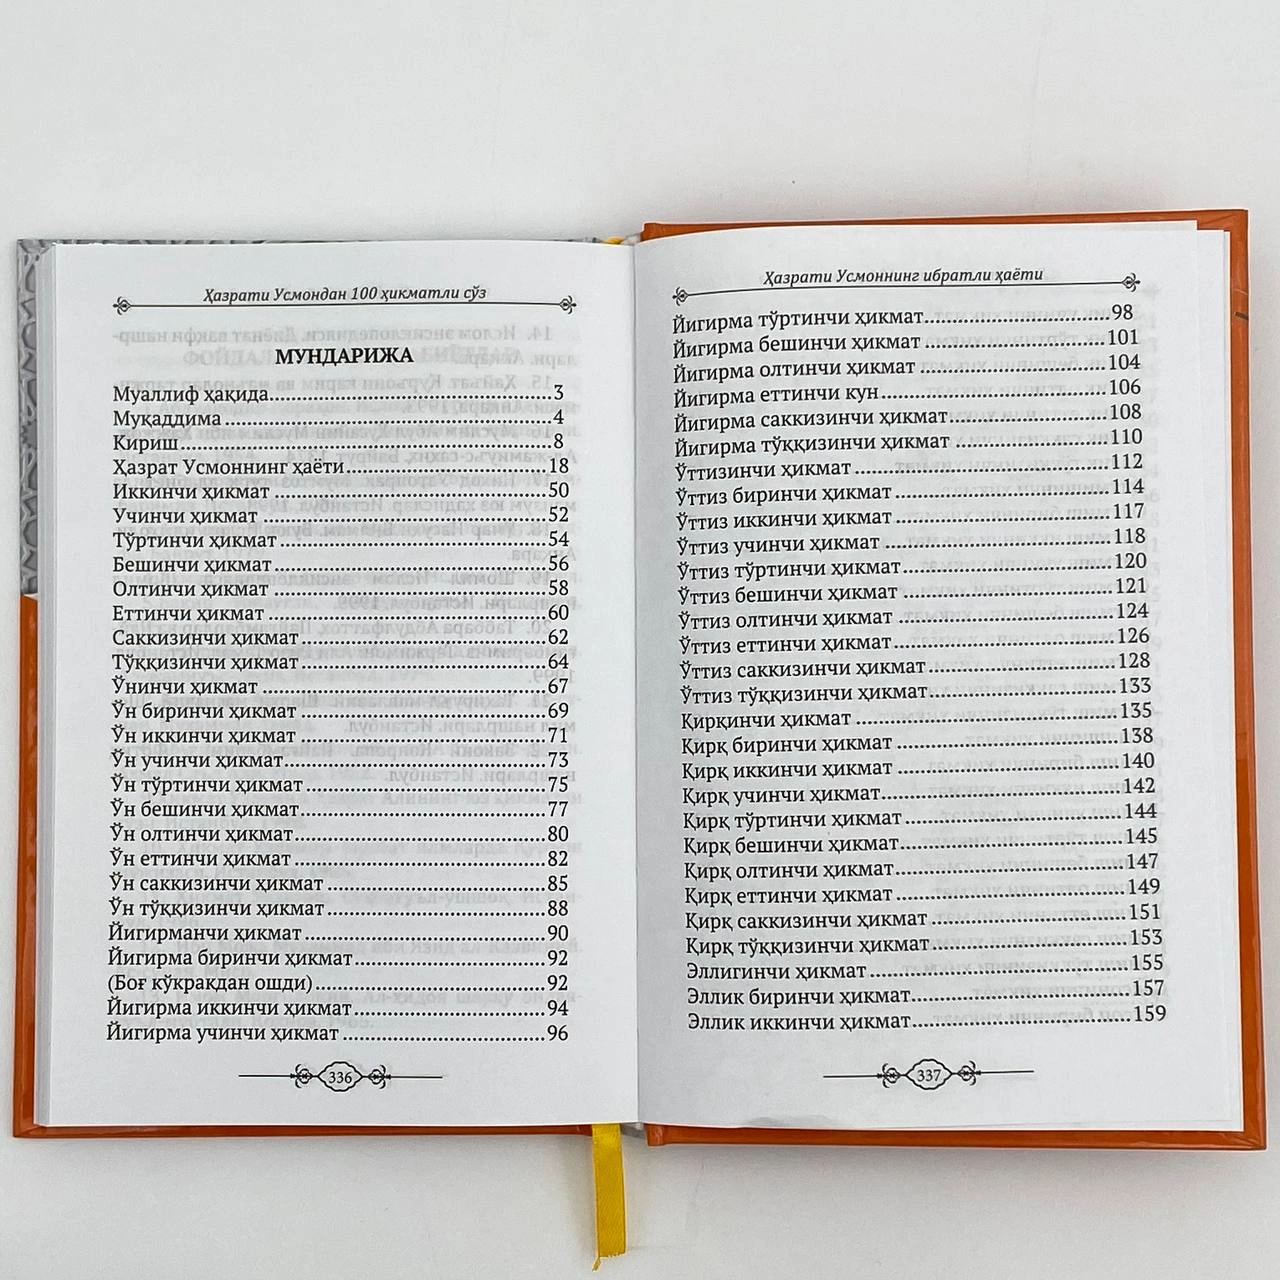 Ҳазрати Усмондан 100 ҳикматли сўз
МУНДАРИЖА
Муаллиф ҳақида..........3
Муқаддима..........4
Кириш..........8
Ҳазрат Усмоннинг ҳаёти..........18
Иккинчи ҳикмат..........50
Учинчи ҳикмат..........52
Тўртинчи ҳикмат..........54
Бешинчи ҳикмат..........56
Олтинчи ҳикмат..........58
Еттинчи ҳикмат..........60
Саккизинчи ҳикмат..........62
Тўққизинчи ҳикмат..........64
Ўнинчи ҳикмат..........67
Ўн биринчи ҳикмат..........69
Ўн иккинчи ҳикмат..........71
Ўн учинчи ҳикмат..........73
Ўн тўртинчи ҳикмат..........75
Ўн бешинчи ҳикмат..........77
Ўн олтинчи ҳикмат..........80
Ўн еттинчи ҳикмат..........82
Ўн саккизинчи ҳикмат..........85
Ўн тўққизинчи ҳикмат..........88
Йигирманчи ҳикмат..........90
Йигирма биринчи ҳикмат..........92
(Боғ кўкракдан ошди)..........92
Йигирма иккинчи ҳикмат..........94
Йигирма учинчи ҳикмат..........96
336
Ҳазрати Усмоннинг ибратли ҳаёти
Йигирма тўртинчи ҳикмат..........98
Йигирма бешинчи ҳикмат..........101
Йигирма олтинчи ҳикмат..........104
Йигирма еттинчи кун..........106
Йигирма саккизинчи ҳикмат..........108
Йигирма тўққизинчи ҳикмат..........110
Ўттизинчи ҳикмат..........112
Ўттиз биринчи ҳикмат..........114
Ўттиз иккинчи ҳикмат..........117
Ўттиз учинчи ҳикмат..........118
Ўттиз тўртинчи ҳикмат..........120
Ўттиз бешинчи ҳикмат..........121
Ўттиз олтинчи ҳикмат..........124
Ўттиз еттинчи ҳикмат..........126
Ўттиз саккизинчи ҳикмат..........128
Ўттиз тўққизинчи ҳикмат..........133
Қирқинчи ҳикмат..........135
Қирқ биринчи ҳикмат..........138
Қирқ иккинчи ҳикмат..........140
Қирқ учинчи ҳикмат..........142
Қирқ тўртинчи ҳикмат..........144
Қирқ бешинчи ҳикмат..........145
Қирқ олтинчи ҳикмат..........147
Қирқ еттинчи ҳикмат..........149
Қирқ саккизинчи ҳикмат..........151
Қирқ тўққизинчи ҳикмат..........153
Эллигинчи ҳикмат..........155
Эллик биринчи ҳикмат..........157
Эллик иккинчи ҳикмат..........159
337